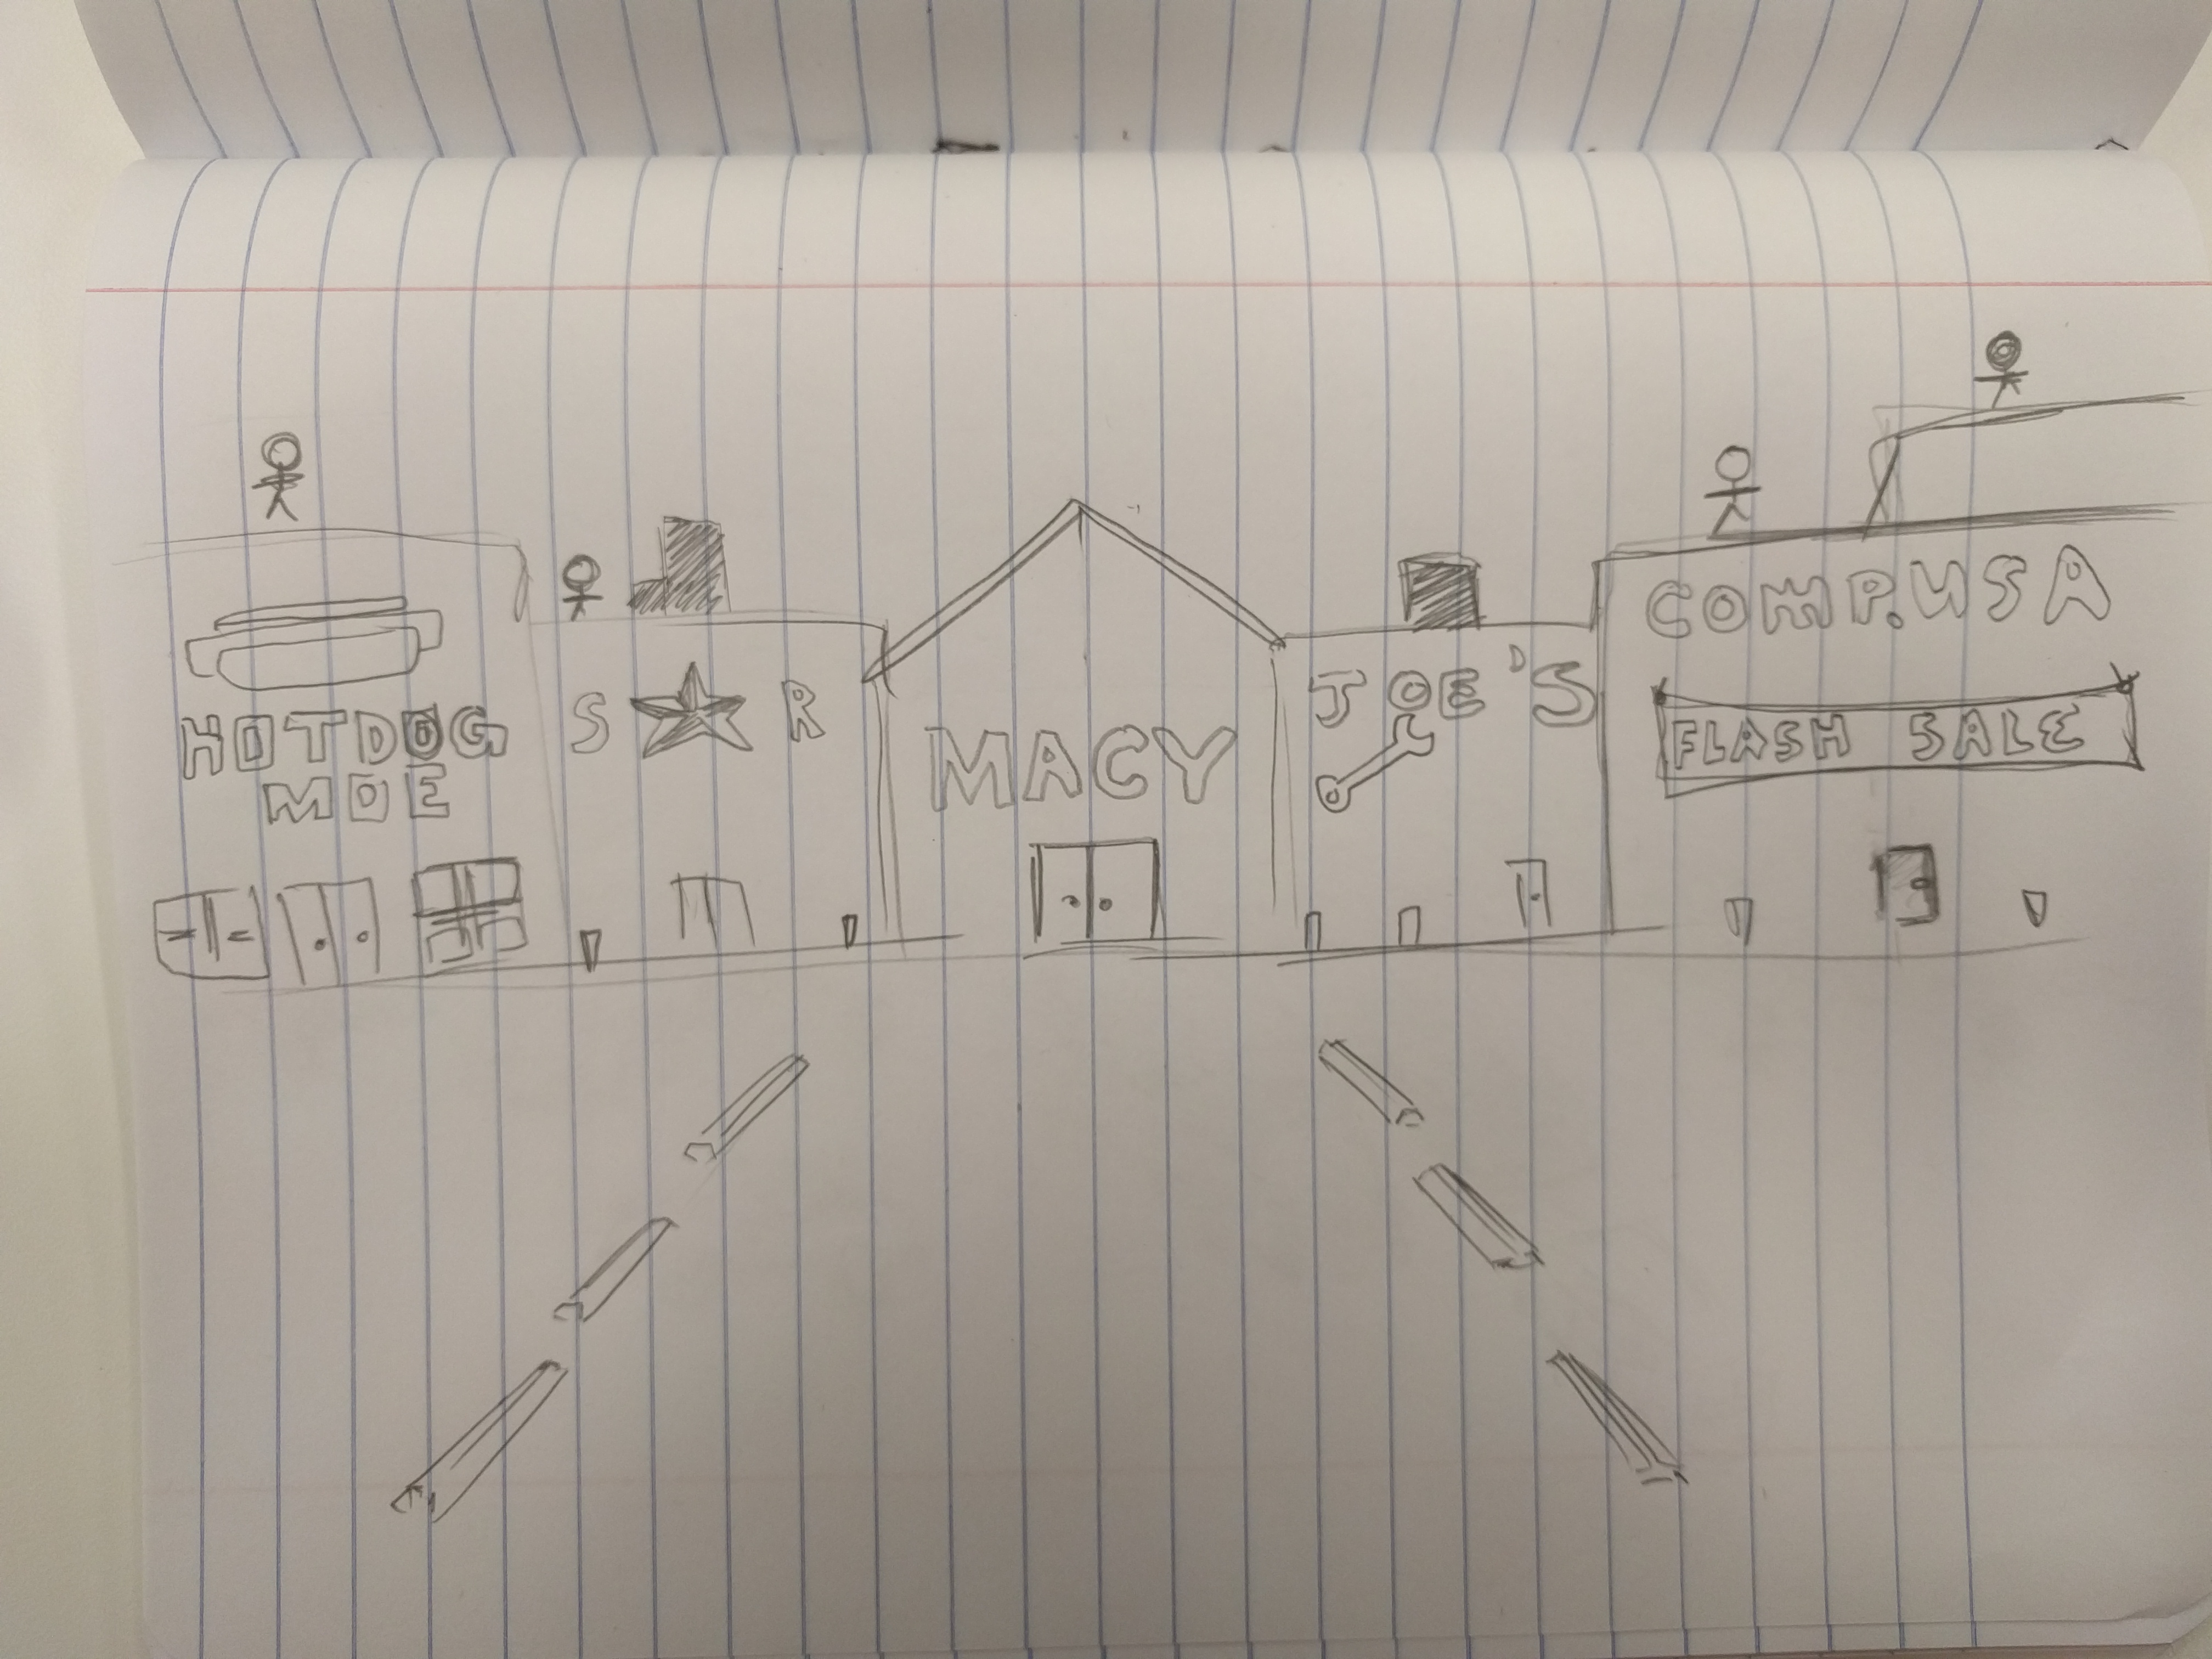 HOTDOG
MOE
S★R
MACY
JOE'S
COMP.USA
FLASH SALE